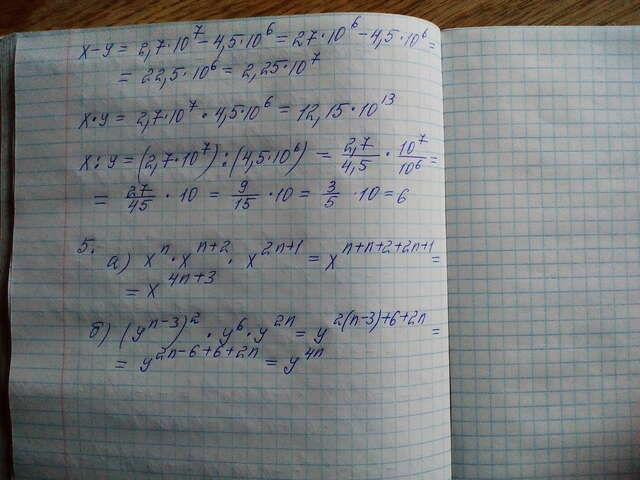 x-y = 2,7·10⁷ - 4,5·10⁶ = 27·10⁶ - 4,5·10⁶ =
= 22,5·10⁶ = 2,25·10⁷
x·y = 2,7·10⁷ · 4,5·10⁶ = 12,15·10¹³
x:y = (2,7·10⁷):(4,5·10⁶) = 2,7/4,5 · 10⁷/10⁶ =
= 27/45 · 10 = 9/15 · 10 = 3/5 · 10 = 6
5. а) xⁿ · xⁿ⁺² · x²ⁿ⁺¹ = xⁿ⁺ⁿ⁺²⁺²ⁿ⁺¹ =
= x⁴ⁿ⁺³
б) (yⁿ⁻³)² · y⁶ · y²ⁿ = y²⁽ⁿ⁻³⁾⁺⁶⁺²ⁿ =
= y²ⁿ⁻⁶⁺⁶⁺²ⁿ = y⁴ⁿ